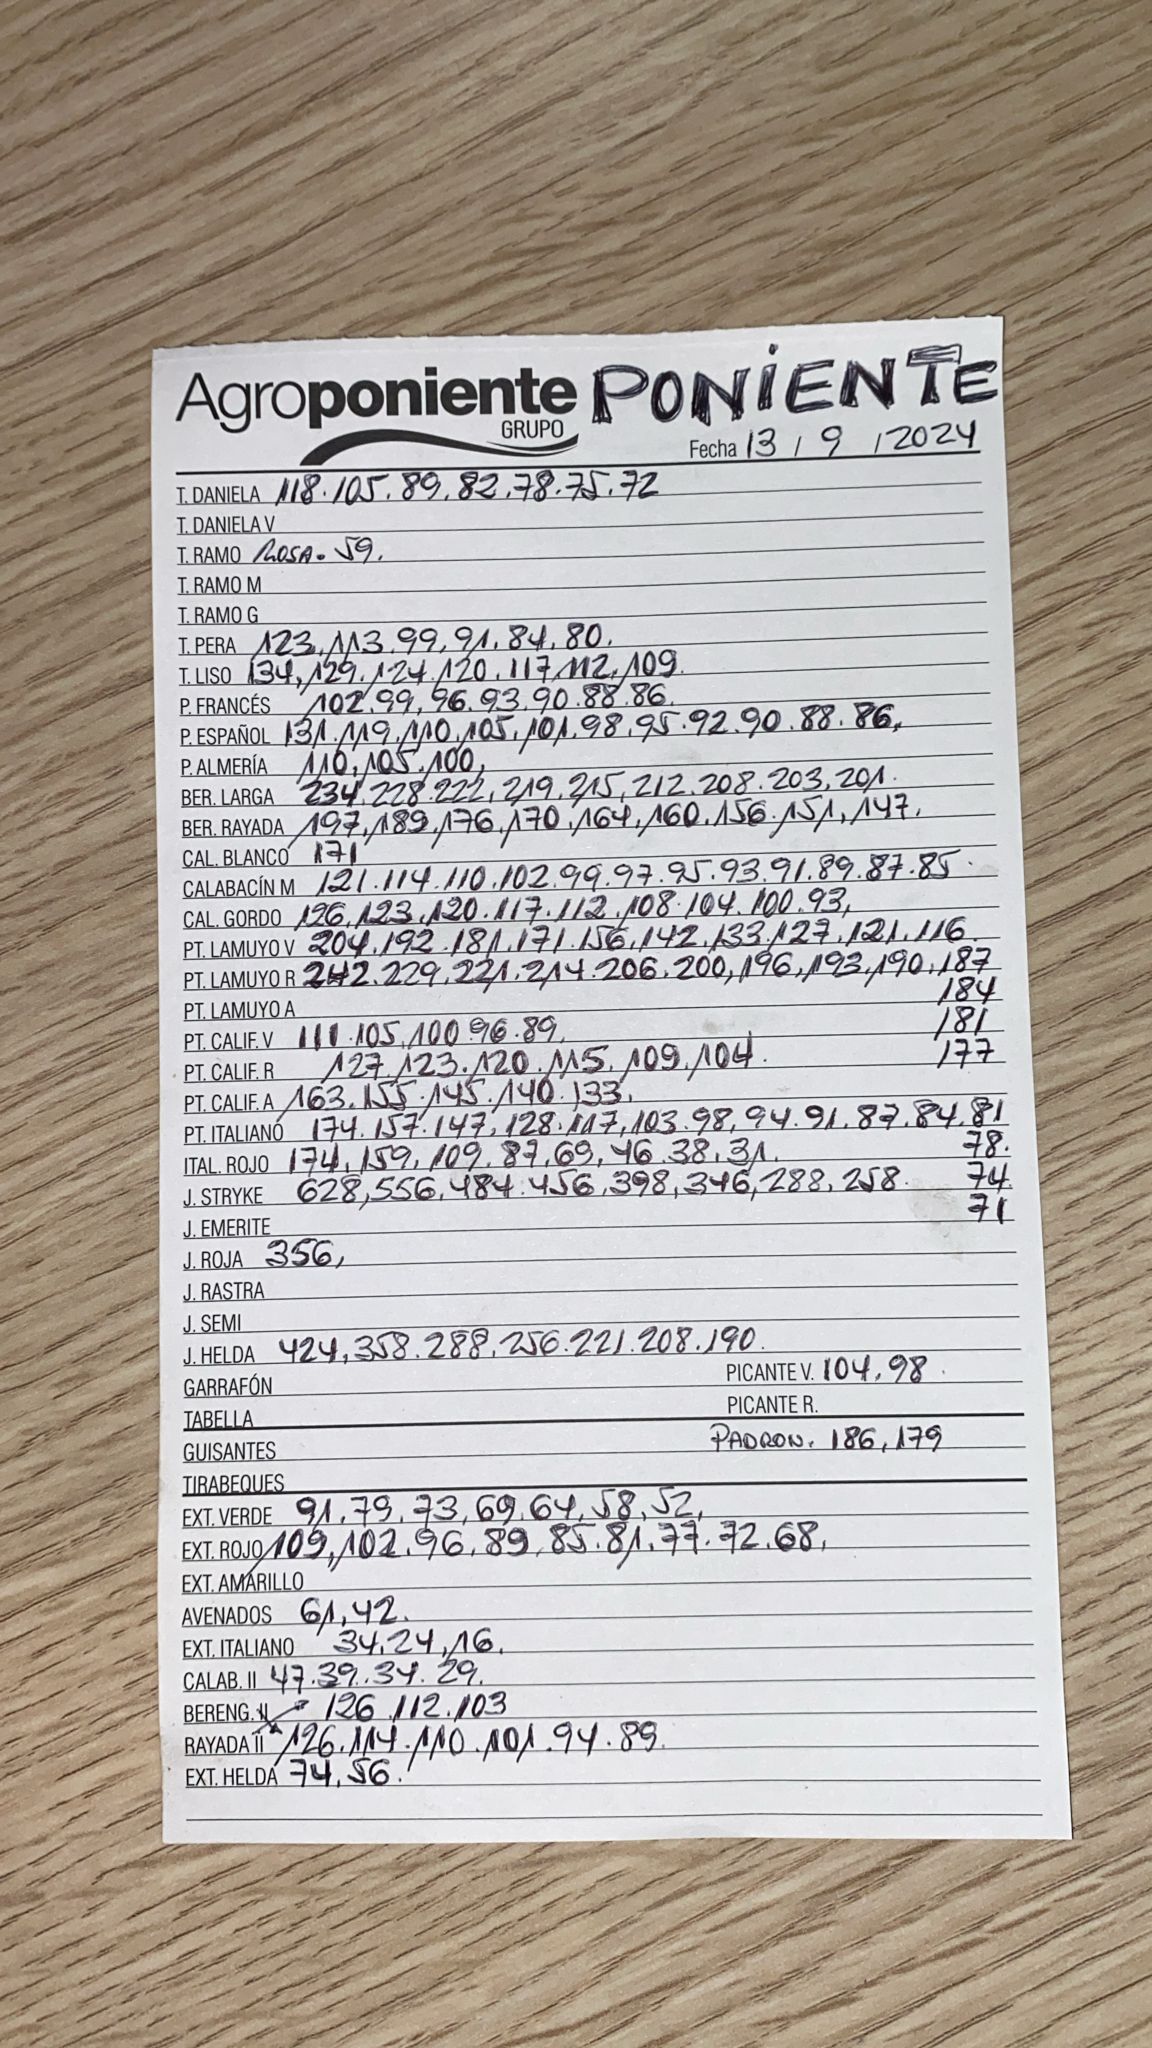 Agroponiente PONIENTE
GRUPO
Fecha 13 / 9 / 2024
T. DANIELA 118.105.89.82.78.75.72
T. DANIELA V
T. RAMO ROSA. 59.
T. RAMO M
T. RAMO G
T. PERA 123,113.99,91.84,80.
T. LISO 134,129,124,120.117,112,109.
P. FRANCÉS 102.99,96.93,90.88.86
P. ESPAÑOL 131.119,110,105,101.98.95.92.90.88.86,
P. ALMERÍA 110,105.100,
BER. LARGA 234,228.222,219,215,212.208.203,201.
BER. RAYADA 197,189,176,170,164,160.156.151,147,
CAL. BLANCO 171
CALABACÍN M 121.114.110.102.99.97.95.93.91.89.87.85
CAL. GORDO 126,123,120.117.112,108.104.100.93,
PT. LAMUYO V 204.192.181.171.156,142,133,127,121,116
PT. LAMUYO R 242.229,221,214.206.200,196,193,190,187
PT. LAMUYO A 184
PT. CALIF. V 111.105,100.96.89, 181
PT. CALIF. R 127,123.120.115,109,104. 177
PT. CALIF. A 163.155.145.140.133,
PT. ITALIANO 174.157.147,128.117,103.98,94.91.87.84.81
ITAL. ROJO 174,159,109.87,69,46.38,31. 78.
J. STRYKE 628,556,484.456,398,346,288,258. 74
J. EMERITE 71
J. ROJA 356,
J. RASTRA
J. SEMI
J. HELDA 424,358.288,256.221.208.190.
GARRAFÓN PICANTE V. 104,98.
TABELLA PICANTE R.
GUISANTES PADRON. 186,179
TIRABEQUES
EXT. VERDE 91,79,73,69,64,58,52,
EXT. ROJO 109,102.96,89,85.81.77.72.68,
EXT. AMARILLO
AVENADOS 61,42.
EXT. ITALIANO 34,24,16.
CALAB. II 47.39.34.29.
BERENG. II 126.112.103
RAYADA II 126.114.110.101.94.89.
EXT. HELDA 74,56.